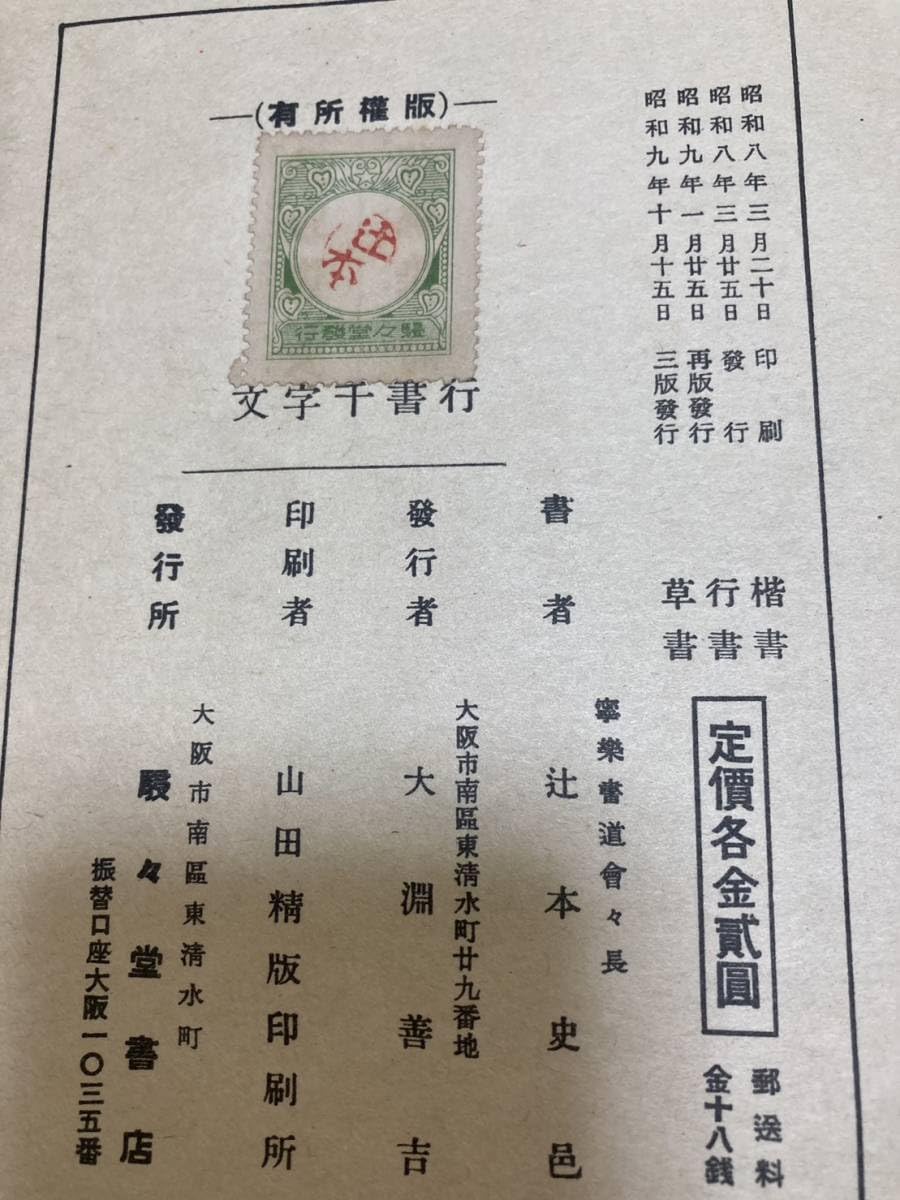 昭和八年三月二十日印刷
昭和八年三月廿五日發行
昭和九年一月廿五日再版發行
昭和九年十月十五日三版發行
(版權所有)
駸々堂發行
行書千字文
楷書
行書
草書
定價各金貳圓
郵送料
金十八錢
書者
寧樂書道會々長
辻本史邑
發行者
大阪市南區東淸水町廿九番地
大淵善吉
印刷者
山田精版印刷所
發行所
大阪市南區東淸水町
駸々堂書店
振替口座大阪一〇三五番